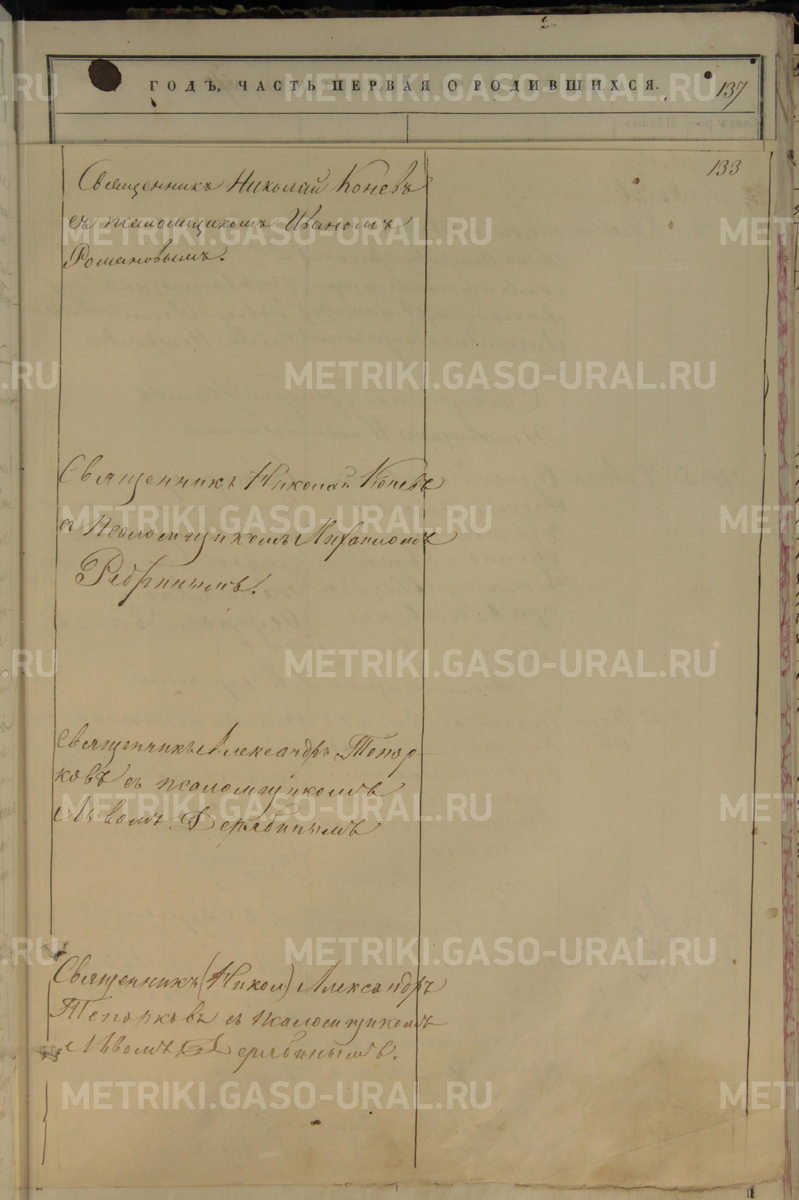 ГОДЪ, ЧАСТЬ ПЕРВАЯ О РОДИВШИХСЯ.
137
133
Священникъ Николай Коневъ
съ псаломщикомъ Иваномъ
Романовымъ.
Священникъ Николай Коневъ
съ псаломщикомъ Михаиломъ
Ребринымъ.
Священникъ Александръ Топор
ковъ съ псаломщикомъ
Львомъ Дерябинымъ
Священникъ (Никол) Александръ
Топорковъ съ псаломщикомъ
Львомъ Дерябинымъ.
METRIKI.GASO-URAL.RU